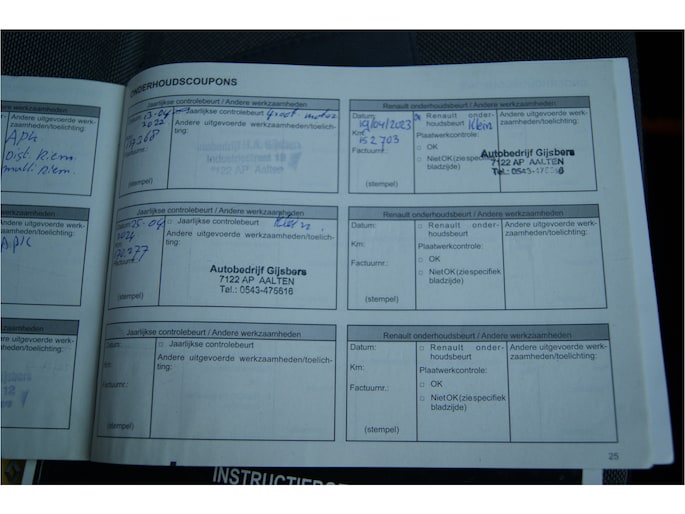 ONDERHOUDSCOUPONS
werkzaamheden
Andere uitgevoerde werk-
zaamheden/toelichting:
APK
Dist. Riem.
multi Riem.
Jaarlijkse controlebeurt / Andere werkzaamheden
13-04
2022
Jaarlijkse controlebeurt
Groot
Andere uitgevoerde werkzaamheden/toelich-
ting:
Factuurnr.:
7122 AP Aalten
(stempel)
Renault onderhoudsbeurt / Andere werkzaamheden
Datum:
19/04/2023
Km:
152703
Factuurnr.:
(stempel)
Renault onder-
houdsbeurt
Klein
Plaatwerkcontrole:
□ OK
□ Niet OK (zie specifiek
bladzijde)
Andere uitgevoerde werk-
zaamheden/toelichting:
Autobedrijf Gijsbers
7122 AP AALTEN
werkzaamheden
Andere uitgevoerde werk-
zaamheden/toelichting:
APK
Jaarlijkse controlebeurt / Andere werkzaamheden
Datum:
25-04
2024
Km:
Factuurnr.:
(stempel)
□ Jaarlijkse controlebeurt
Klein.
Andere uitgevoerde werkzaamheden/toelich-
ting:
Autobedrijf Gijsbers
7122 AP AALTEN
Tel.: 0543-475616
Renault onderhoudsbeurt / Andere werkzaamheden
Datum:
Km:
Factuurnr.:
(stempel)
□ Renault onder-
houdsbeurt
Plaatwerkcontrole:
□ OK
□ Niet OK (zie specifiek
bladzijde)
Andere uitgevoerde werk-
zaamheden/toelichting:
werkzaamheden
Andere uitgevoerde werk-
zaamheden/toelichting:
Jaarlijkse controlebeurt / Andere werkzaamheden
Datum:
Km:
Factuurnr.:
(stempel)
□ Jaarlijkse controlebeurt
Andere uitgevoerde werkzaamheden/toelich-
ting:
Renault onderhoudsbeurt / Andere werkzaamheden
Datum:
Km:
Factuurnr.:
(stempel)
□ Renault onder-
houdsbeurt
Plaatwerkcontrole:
□ OK
□ Niet OK (zie specifiek
bladzijde)
Andere uitgevoerde werk-
zaamheden/toelichting:
25